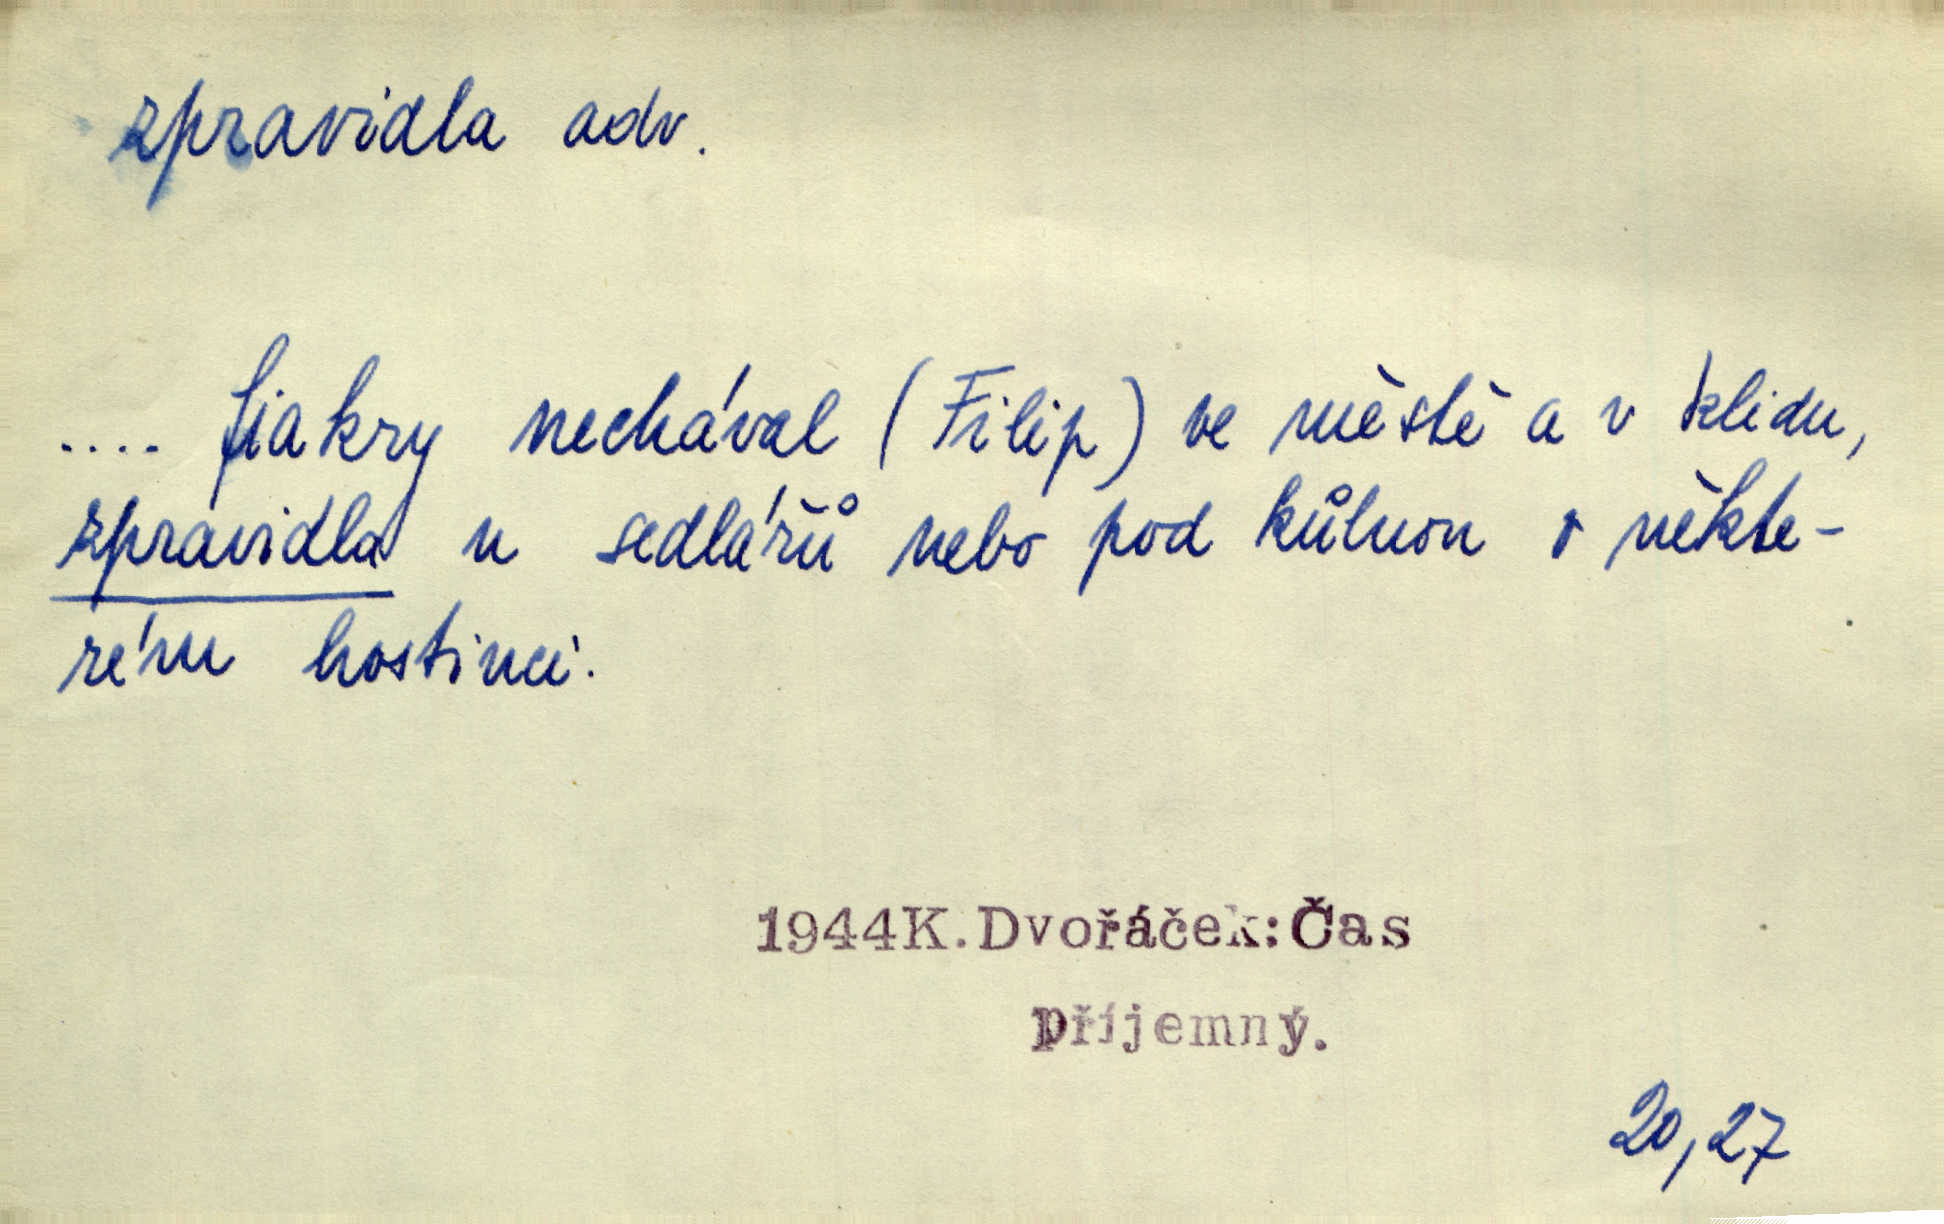 zpravidla adv.
.... fiakry nechával (Filip) ve městě a v klidu,
zpravidla u sedlářů nebo pod kůlnou v někte-
rému hostinci.
1944K.Dvořáček:Čas
příjemný.
20,27